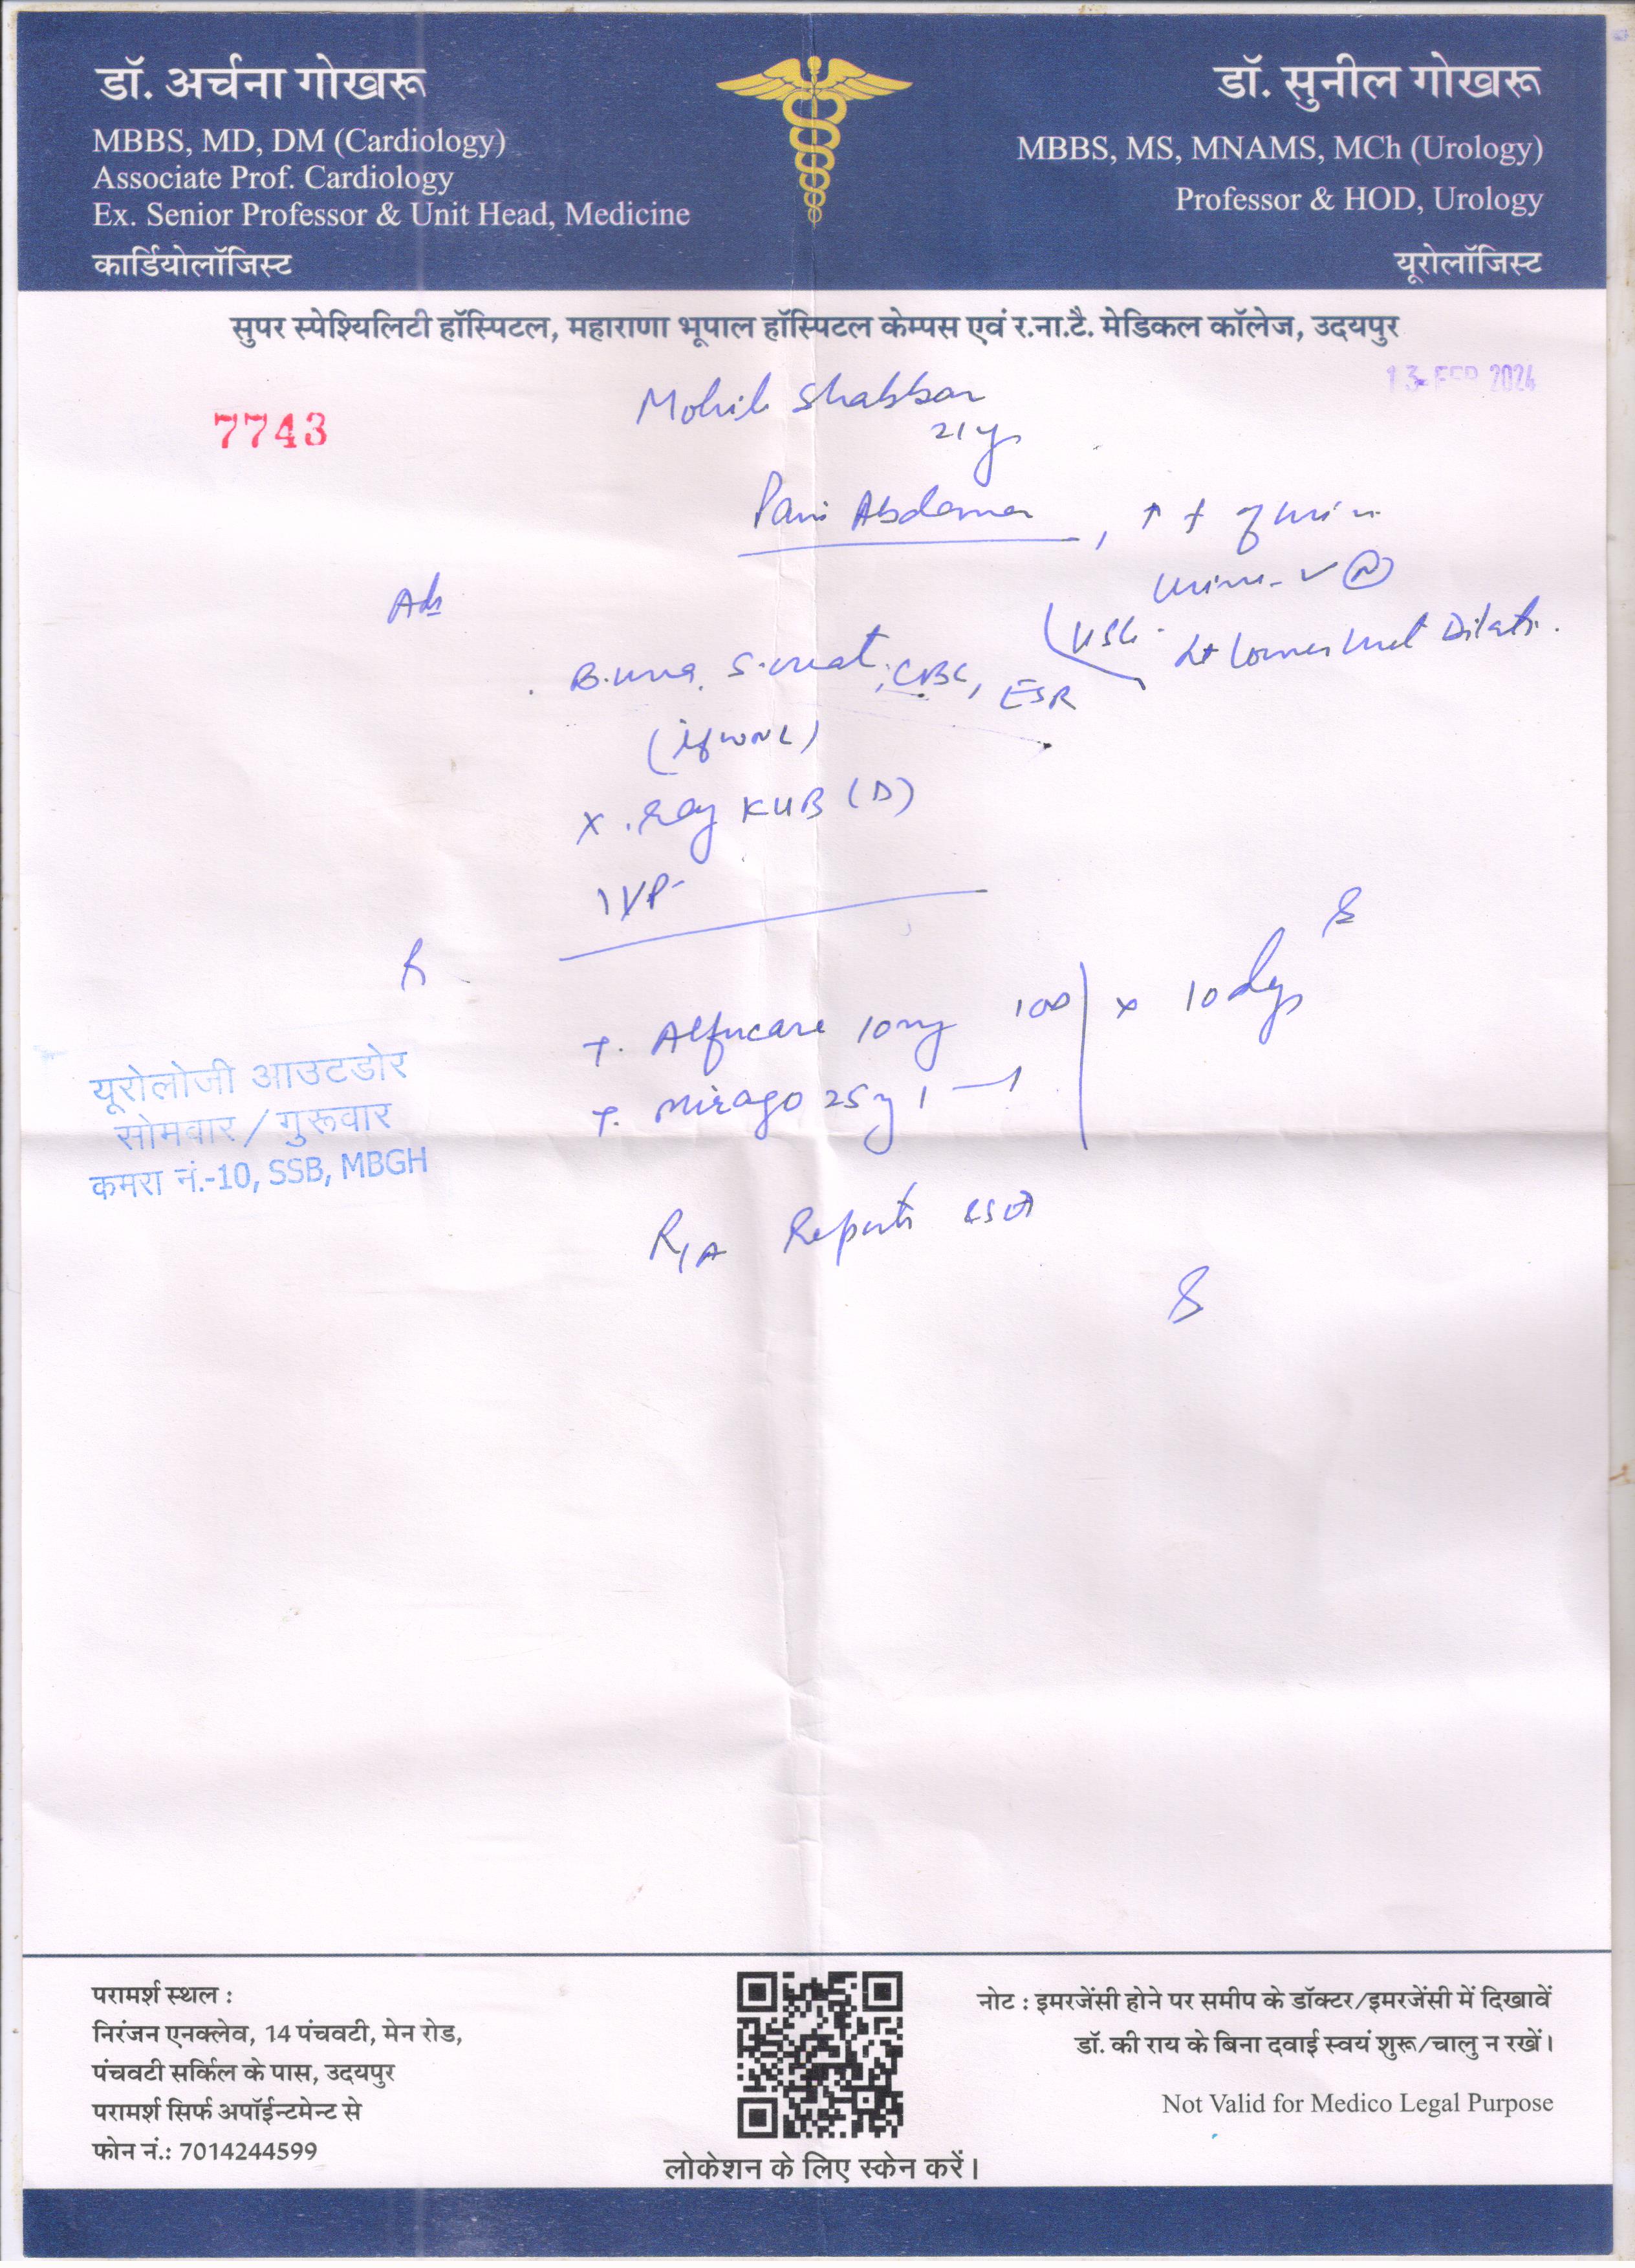 डॉ. अर्चना गोखरू
MBBS, MD, DM (Cardiology)
Associate Prof. Cardiology
Ex. Senior Professor & Unit Head, Medicine
कार्डियोलॉजिस्ट
डॉ. सुनील गोखरू
MBBS, MS, MNAMS, MCh (Urology)
Professor & HOD, Urology
यूरोलॉजिस्ट
सुपर स्पेश्यिलिटी हॉस्पिटल, महाराणा भूपाल हॉस्पिटल केम्पस एवं र.ना.टै. मेडिकल कॉलेज, उदयपुर
13 FEB 2024
7743
Shabbar
21y
Pain Abdomen, ↑ f of urin
Adv
urine - ✓ (N)
USG - Lt lower uret Dilatn.
B. urea, S. creat, CBC, ESR
(if WNL)
X. Ray KUB (D)
IVP
R
T. Alfucare 10mg
T. Mirago 25mg 1 — 1
x 10 days
यूरोलोजी आउटडोर
सोमवार / गुरूवार
कमरा नं.-10, SSB, MBGH
R/A Reports
परामर्श स्थल :
निरंजन एनक्लेव, 14 पंचवटी, मेन रोड,
पंचवटी सर्किल के पास, उदयपुर
परामर्श सिर्फ अपॉईन्टमेन्ट से
फोन नं.: 7014244599
लोकेशन के लिए स्केन करें।
नोट : इमरजेंसी होने पर समीप के डॉक्टर/इमरजेंसी में दिखावें
डॉ. की राय के बिना दवाई स्वयं शुरू/चालु न रखें।
Not Valid for Medico Legal Purpose